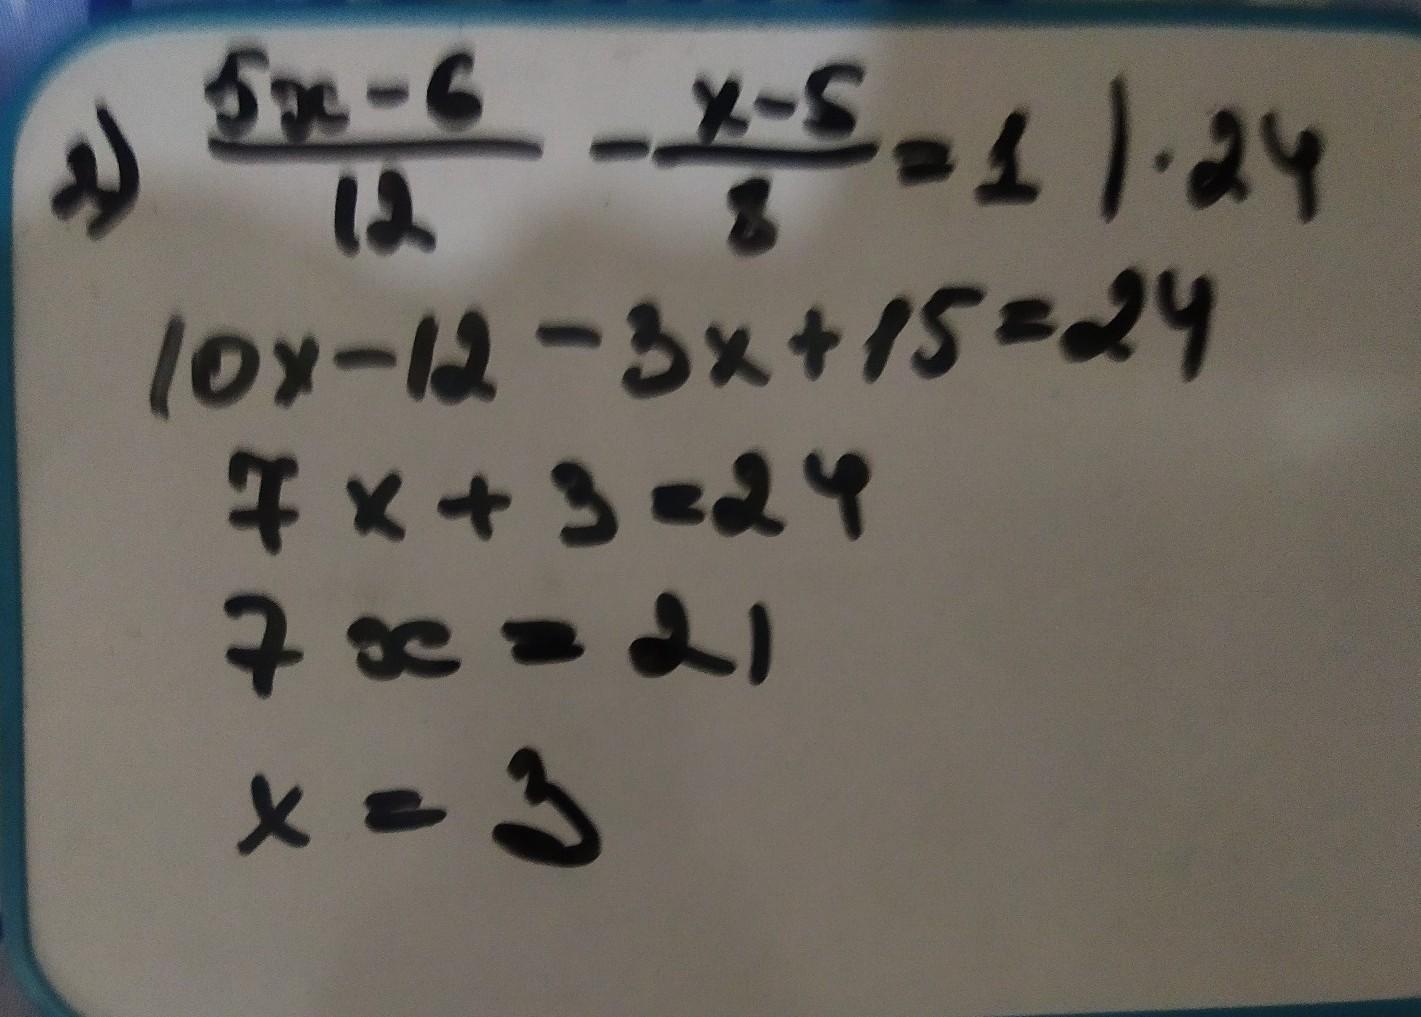 2) 5x-6/12 - x-5/8 = 1 | · 24
10x-12-3x+15=24
7x+3=24
7x=21
x=3